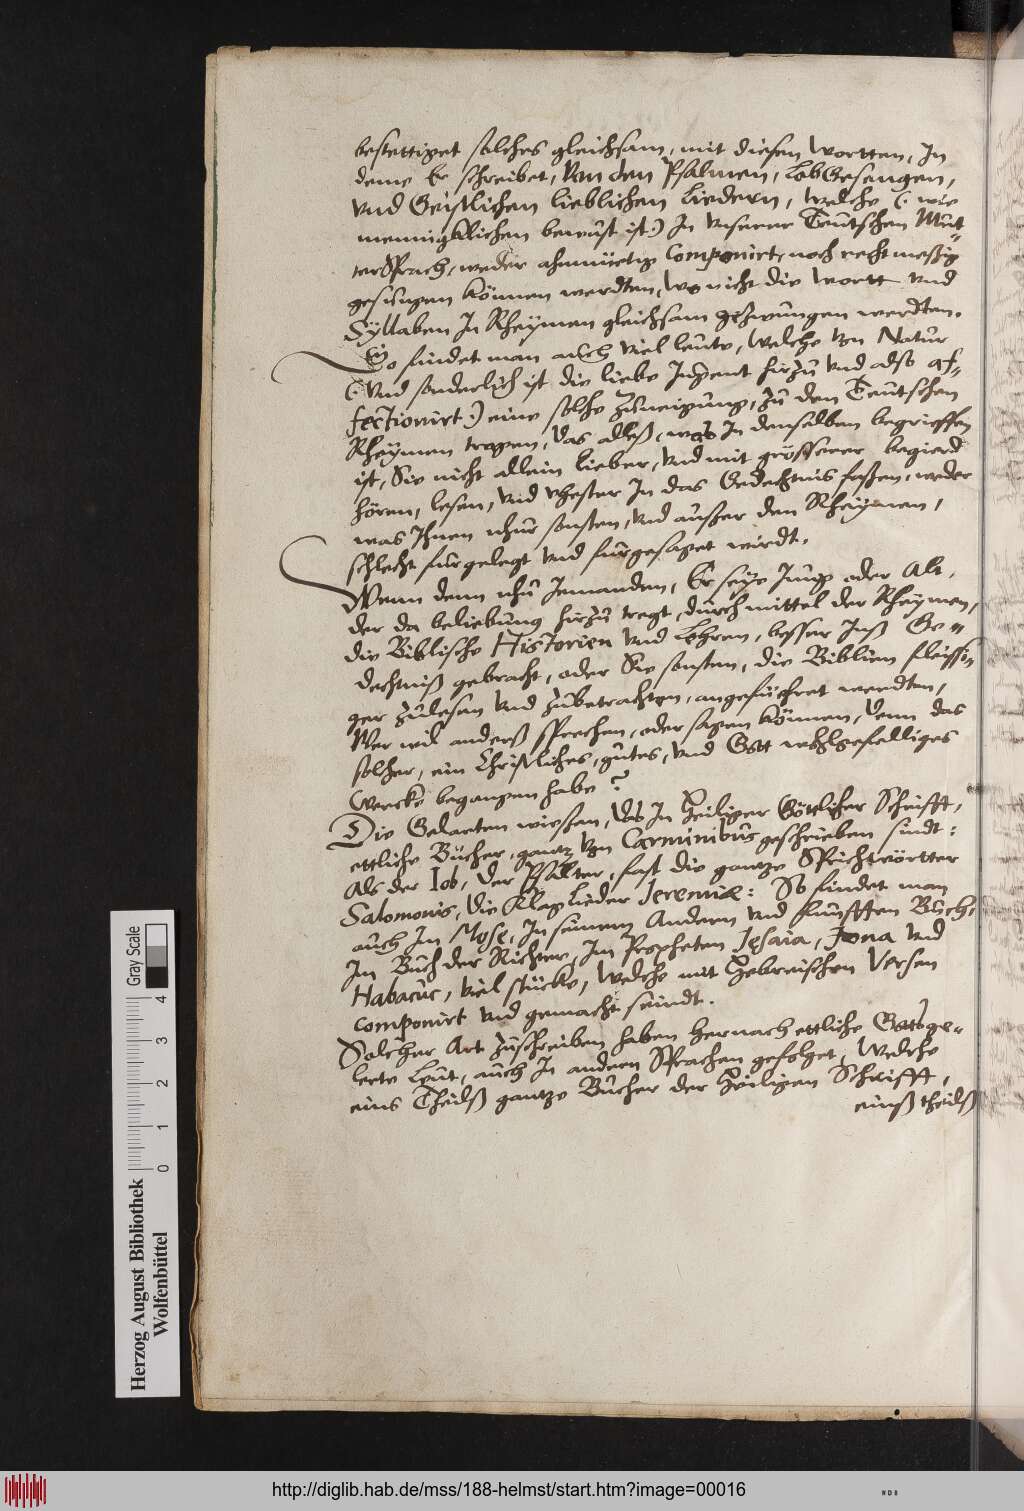 bestettiget solches gleichsam, mit diesen Wortten, In
deme Er schreibet, Von den Psalmen, LobGesengen,
vnd Geistlichen lieblichen Liedern, welche (: wie
menniglichen bewust ist:) In vnserer Teutschen Mut=
terSprach, weder ahnmüetig componirt, noch rechtmessig
gesungen können werdten, wo nicht die Wortt vnd
Syllaben In Rheymen gleichsam gezwungen werdten.
So findet man auch viel leute, welche von Natur
(: Vnd sonderlich ist die liebe Jugent hirzu vnd also af=
fectionirt:) eine solche zuneigung, zu den Teutschen
Rheymen tragen, das alleß, was In denselben begrieffen
ist, Sie nicht allein lieber, vnd mit grösserer begierd
hören, lesen, vnd vhester In das Gedechtnis faßen, weder
was Ihnen nhur sonsten, vnd außer den Rheymen,
schlecht furgelegt vnd furgesaget wirdt.
Wenn denn nhu Jemanden, Er seye Jung oder Alt,
der da beliebung hirzu tregt, durch mittel der Rheymen,
die Biblische Historien vnd Lehren, besser Inß Ge=
dechtniß gebracht, oder Sie sonsten, die Biblien fleissi=
ger zulesen vnd zubetrachten, angeführet werdten,
Wer wil anderß sprechen, oder sagen können, denn das
solcher, ein Christliches, gutes, vnd Gott wohlgefelliges
Wercke begangen habe?
Die Gelarten wießen, das In Heiliger Göttlicher Schrifft,
ettliche Bücher, gantz von Carminibus geschrieben sindt:
Als der Iob, der Psalter, fast die gantze Sprichtwörtter
Salomonis, die KlagLieder Jeremiæ: So findet man
auch In Mose, In seinem Andern vnd fünfften Buch,
Im Buch der Richter, Im Propheten Jesaia, Jona vnd
Habacuc, viel stücke, welche mit Hebreischen Versen
componirt vnd gemacht seindt.
Solcher Art zuschreiben haben hernach ettliche Gottsge=
lerte Leut, auch In andern Sprachen gefolget, Welche
eins Theilß gantze Bücher der Heiligen Schrifft,
einß theilß
Herzog August Bibliothek
Wolfenbüttel
0 1 2 3 4
Gray Scale
http://diglib.hab.de/mss/188-helmst/start.htm?image=00016